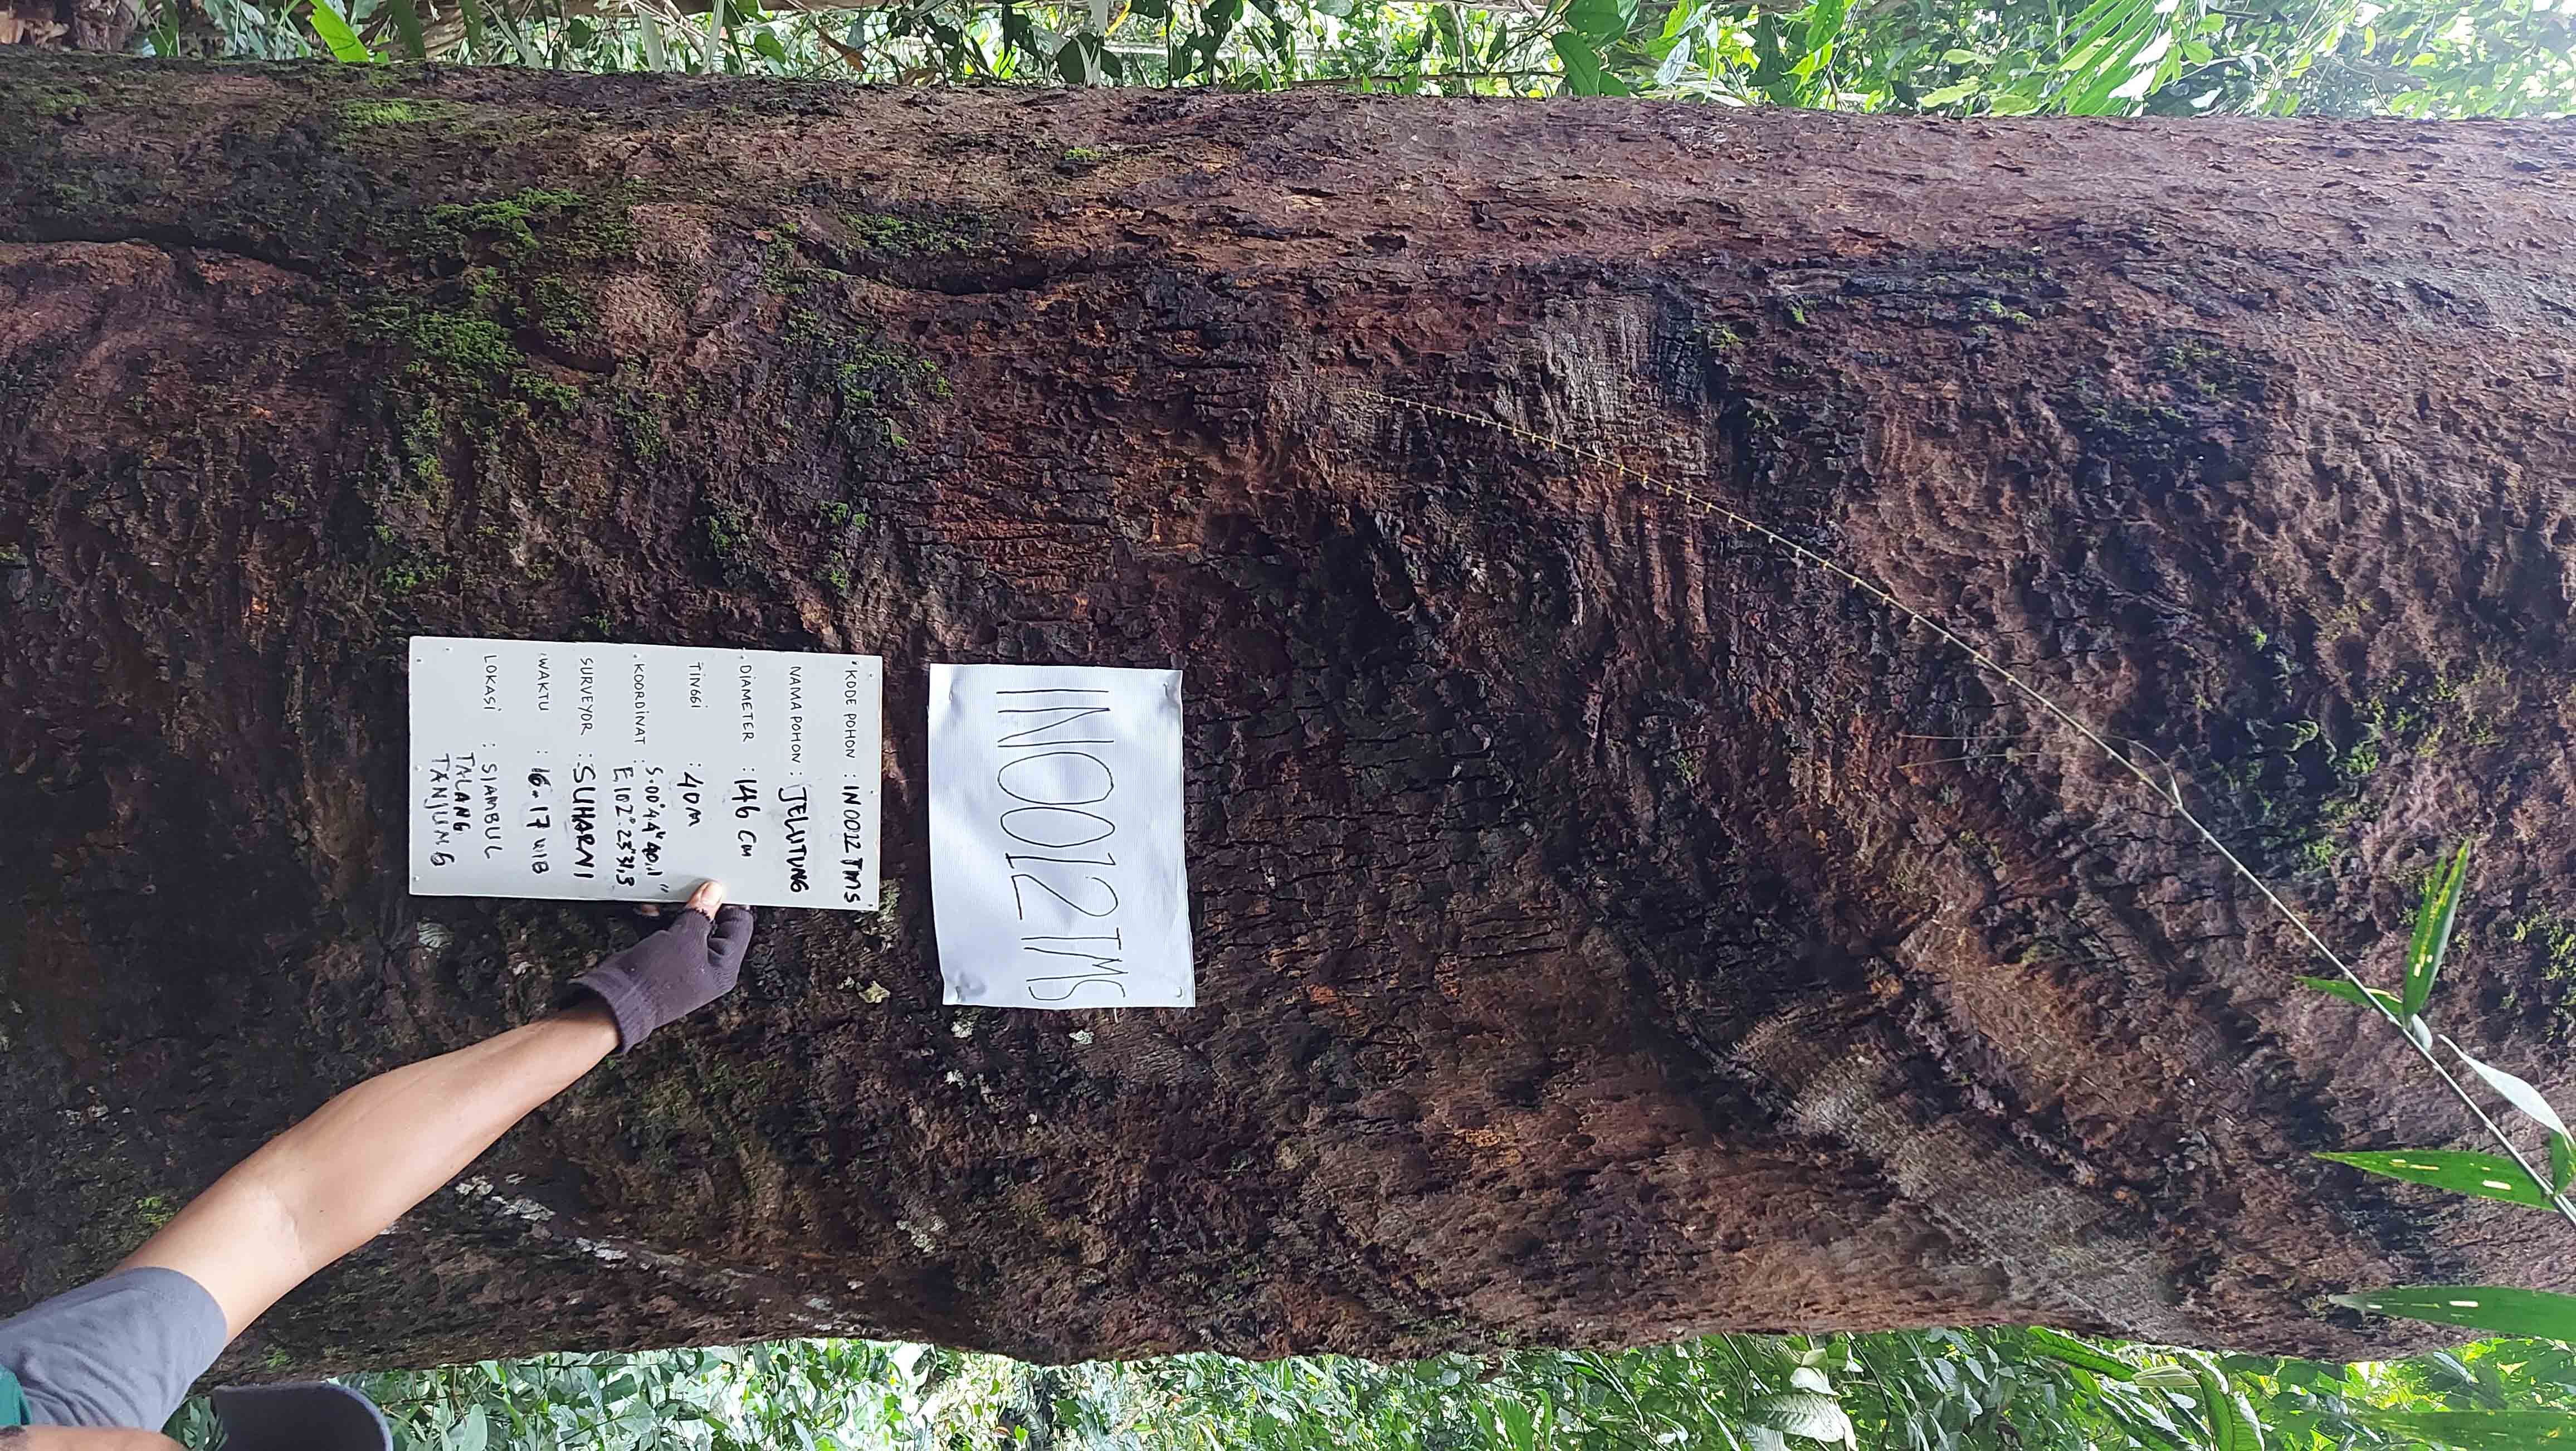 IN0012TMS
KODE POHON : IN0012 TMS
NAMA POHON : JELUTUNG
DIAMETER : 146 Cm
TINGGI : 40M
KOORDINAT : S.00°44"40,1"
E102°.23"31,3
SURVEYOR : SUHARNI
WAKTU : 16.17 WIB
LOKASI : SIAMBUL
TALANG
TANJUNG